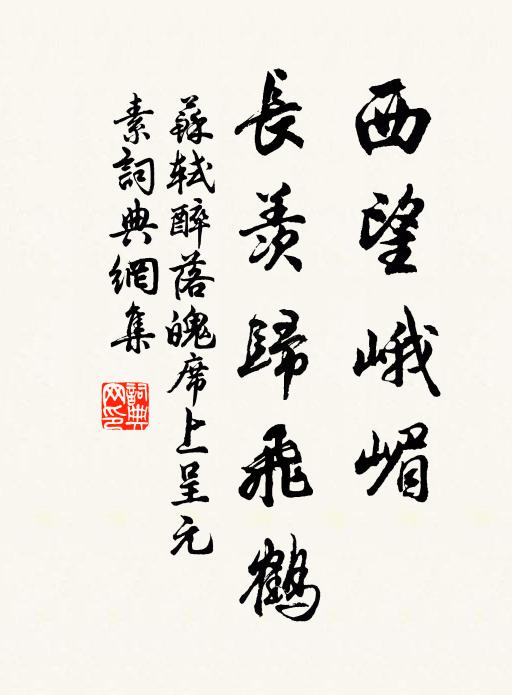 西望峨嵋
長羨歸飛鶴
蘇軾醉落魄席上呈元
素詞典網集
詞典
网印